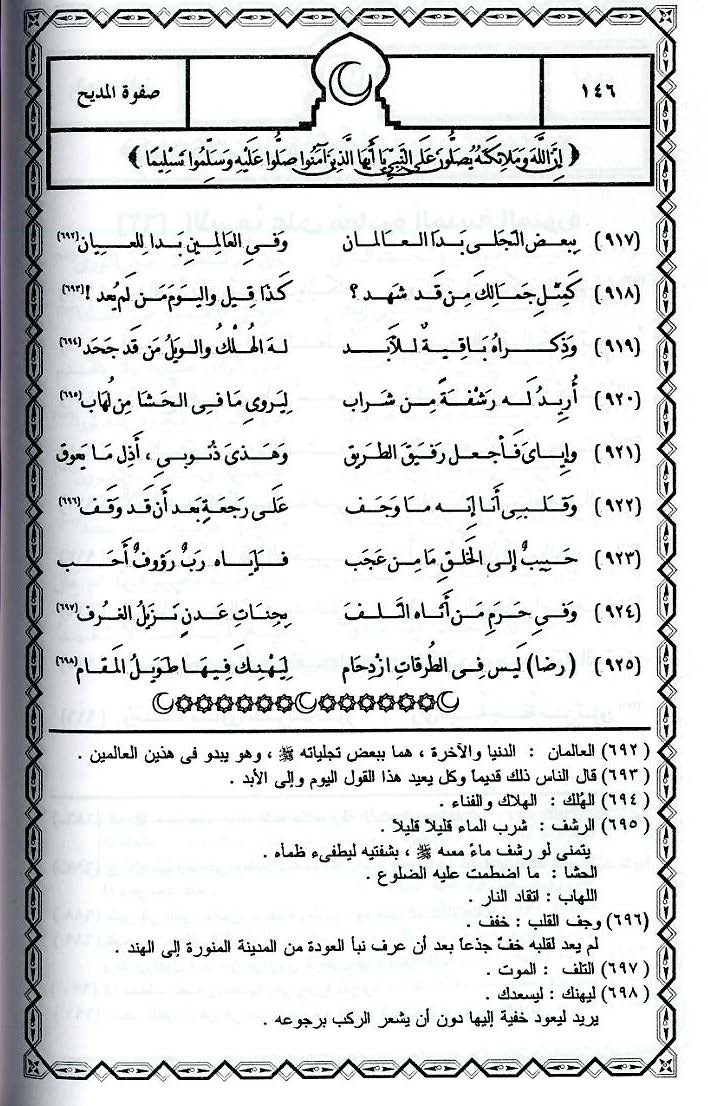 ١٤٦
صفوة المديح
﴿ إِنَّ اللَّهَ وَمَلَائِكَتَهُ يُصَلُّونَ عَلَى النَّبِيِّ يَا أَيُّهَا الَّذِينَ آمَنُوا صَلُّوا عَلَيْهِ وَسَلِّمُوا تَسْلِيمًا ﴾
(٩١٧) بِبعض التجلى بدَا العالمان وفى العَالمِينِ بَدا لِلعيان (٦٩٢)
(٩١٨) كَمِثْلِ جَمَالِكَ مِن قَد شهد ؟ كَذا قِيل واليَومَ مَن لَم يُعد ! (٦٩٣)
(٩١٩) وَذكراهُ بَاقيةٌ للأبد لهَ الهُلْكُ والوَيلُ مَن قد جَحَد (٦٩٤)
(٩٢٠) أُريدُ لَه رَشْفَةً مِن شراب لِيَروِي مَا فى الحَشَا مِن لُهاب (٦٩٥)
(٩٢١) وإيَاىَ فَاجعل رَفيقَ الطريق وَهَذى ذُنوبى ، أَذِل مَا يَعوق
(٩٢٢) وَقَلبى أَنا إنّه ما وَجَف عَلى رَجعَةٍ بعد أن قَد وَقَف (٦٩٦)
(٩٢٣) حَبيبٌ إلى الخَلقِ مَا مِن عَجَب فَإياه رَبٌ رؤوفٌ أَحَب
(٩٢٤) وَفى حَرمِ مَن أتاه التَلف بِجناتِ عَدنٍ نَزيلُ الغُرف (٦٩٧)
(٩٢٥) (رضا) لَيس فى الطُرقاتِ ازْدِحَام لِيَهنِكَ فيهَا طَويلُ المَقام (٦٩٨)
(٦٩٢) العالمان : الدنيا والآخرة ، هما ببعض تجلياته ﷺ ، وهو يبدو فى هذين العالمين .
(٦٩٣) قال الناس ذلك قديماً وكل يعيد هذا القول اليوم وإلى الأبد .
(٦٩٤) الهُلك : الهلاك والفناء .
(٦٩٥) الرشف : شرب الماء قليلاً قليلاً .
يتمنى لو رشف ماءً مسه ﷺ ، بشفتيه ليطفىء ظمأه .
الحشا : ما اضطمت عليه الضلوع .
اللهاب : اتقاد النار .
(٦٩٦) وجف القلب : خفف .
لم يعد لقلبه خفٌ جذعاً بعد أن عرف نبأ العودة من المدينة المنورة إلى الهند .
(٦٩٧) التلف : الموت .
(٦٩٨) ليهنك : ليسعدك .
يريد ليعود خفية إليها دون أن يشعر الركب برجوعه .